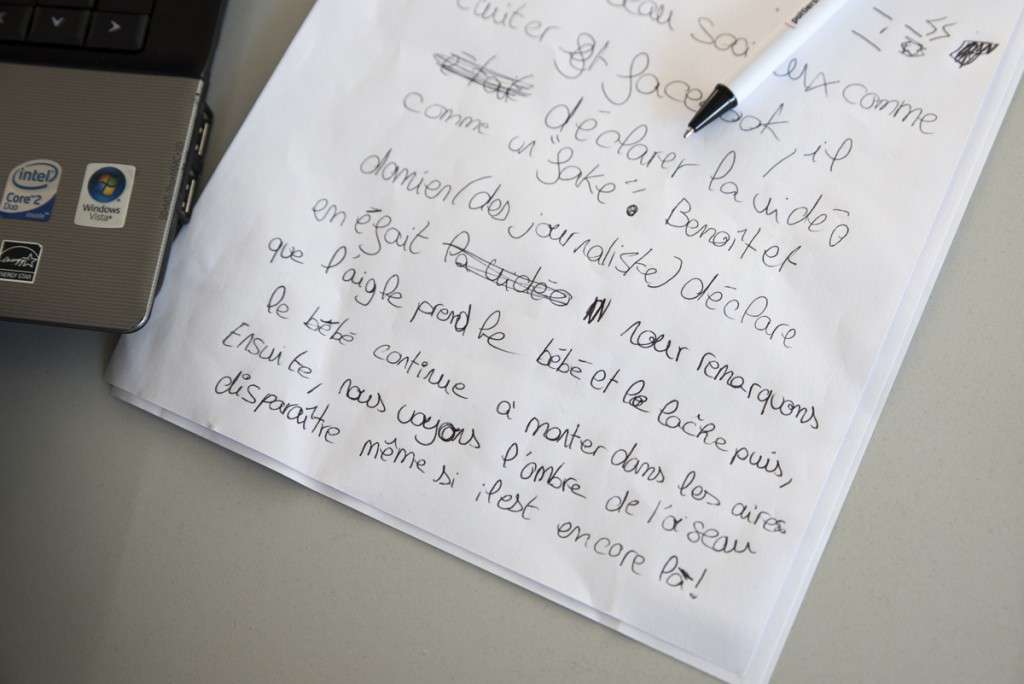 comme
et facebook, il
était déclarer la vidéo
comme un "fake". Benoît et
damien (des journaliste) déclare
en éfait la vidéo nour remarquons
que l'aigle prend le bébé et le lâche puis,
le bébé continue à monter dans les aires
Ensuite, nous voyons l'ombre de l'oiseau
disparaître même si il est encore là!
intel
Core™2
Duo
inside™
Windows
Vista®
ENERGY STAR